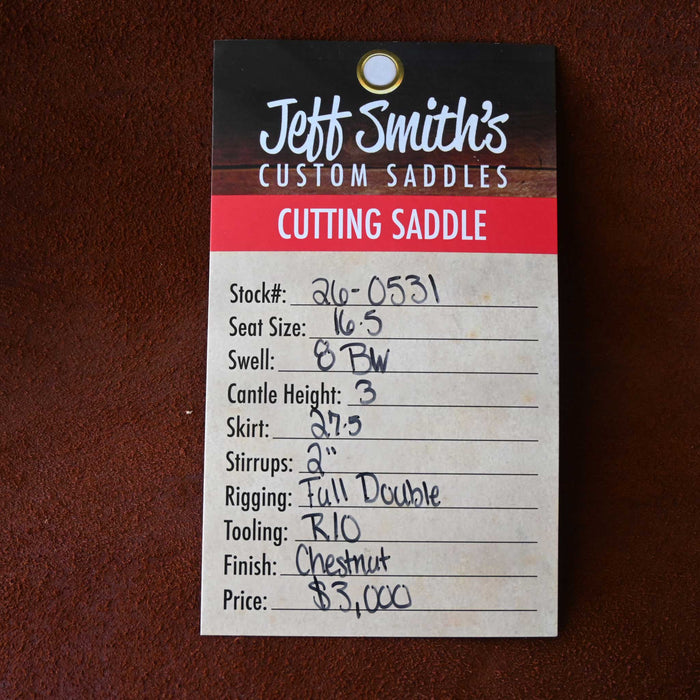 Jeff Smith's
CUSTOM SADDLES
CUTTING SADDLE
Stock#: 26-0531
Seat Size: 16.5
Swell: 8 BW
Cantle Height: 3
Skirt: 27.5
Stirrups: 2"
Rigging: Full Double
Tooling: R10
Finish: Chestnut
Price: $3,000